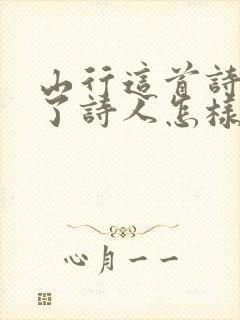 山行這首詩
了詩人怎樣
心月一一